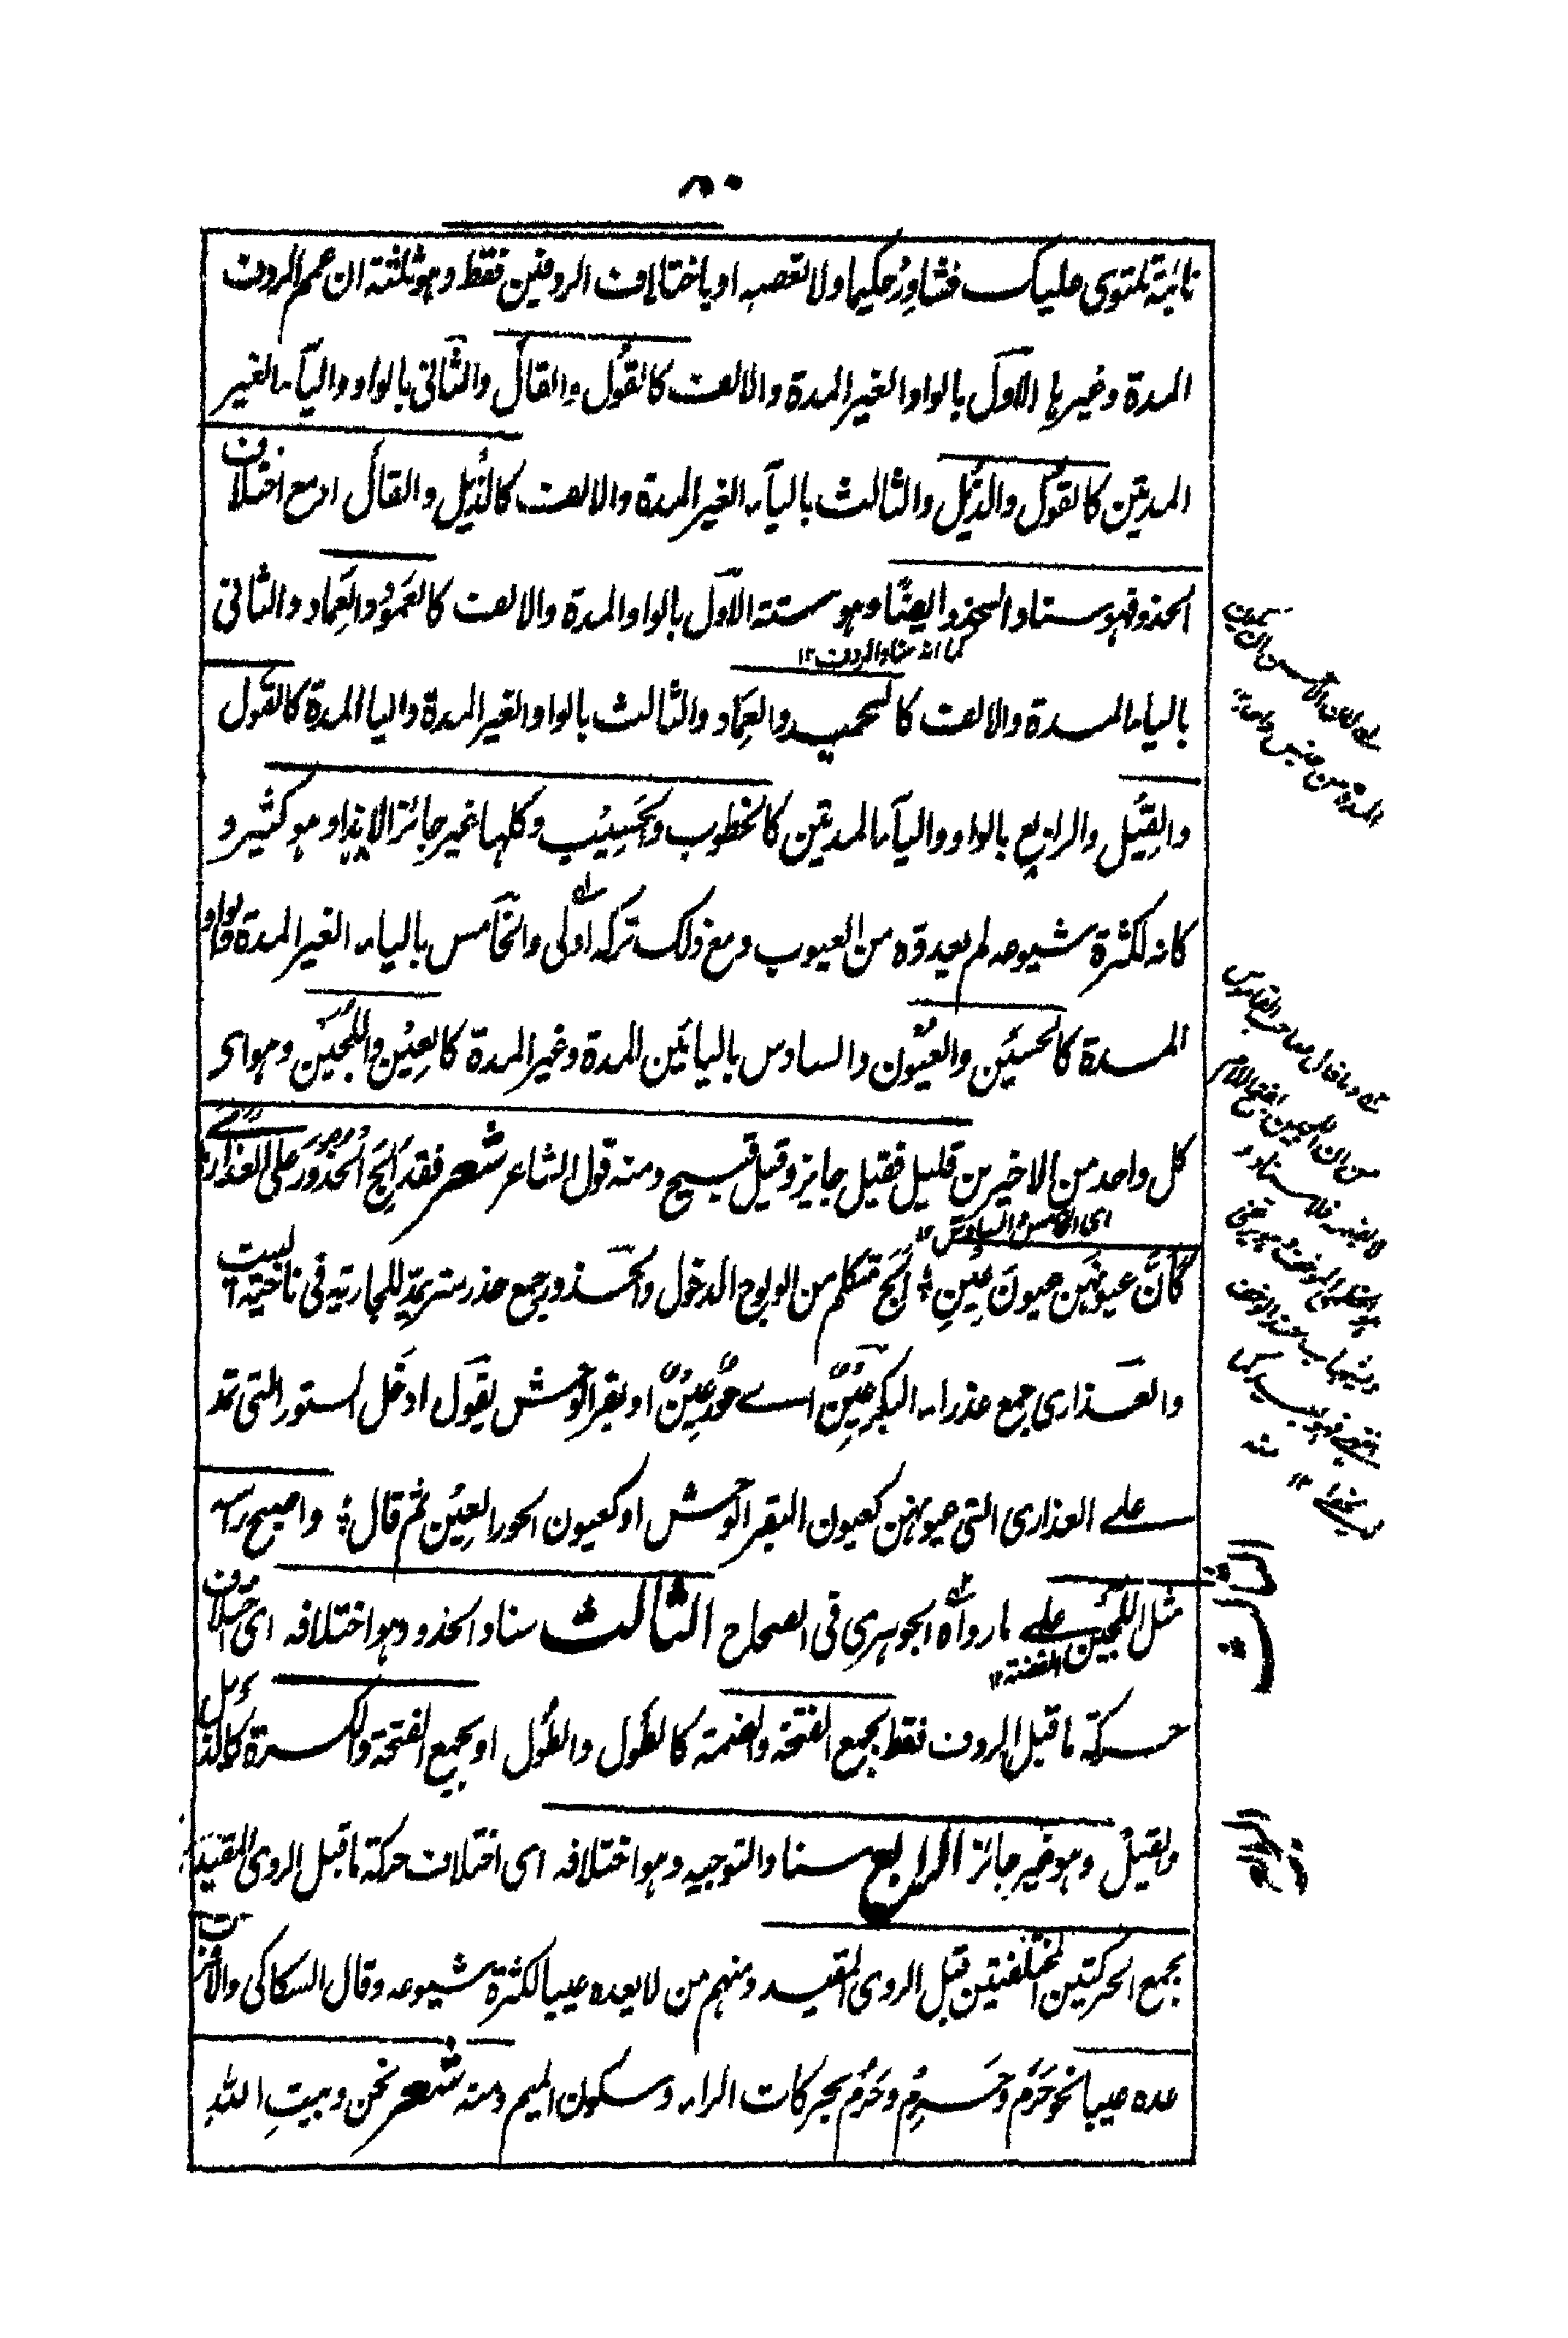 ٨٠
نائبة تلتوى عليك فشاوِرْ حكيما ولا تعصه او باختلاف الردفين فقط وهو ثلثة ان عم الردف
المدة وغيرها الاول بالواو الغير المدة والالف كالقَوْل والقال والثانى بالواو والياء الغير
المدتين كالقَوْل والذَيْل والثالث بالياء الغير المدة والالف كالذَيْل والقال او مع اختلاف
الحذو فهو سناد الحذو ايضًا وهو ستة الاول بالواو المدة والالف كالعَمُوْد والعِمَاد والثانى
كما انه سناد الردف ١٢
بالياء المدة والالف كالحميد والعِمَاد والثالث بالواو الغير المدة والياء المدة كالقَول
والقِيْل والرابع بالواو والياء المدتين كالخطوب والحَسِيْب وكلها غير جائز الا هذا وهو كثير و
كانه لكثرة شيوعه لم يعدوه من العيوب ومع ذلك تركه اولى والخامس بالياء الغير المدة والواو
المدة كالحسَيْن والعيُوْن والسادس باليائين المدة وغير المدة كالعِيْن واللُجَيْن وهو اى
كل واحد من الاخيرين قليل فقيل جايز وقيل قبيح ومنه قول الشاعر شعر فقد اَلِجُ الخُدُوْرَ على العذارى
اى الخامس والسادس ١٢
كَاَنَّ عيونَهن عيونُ عِيْنِ ؛ اَلِجُ متكلم من الولوج الدخول والخدور جمع خدر ستر يمد للجارية فى ناحية البيت
والعذارى جمع عذراء البكر عِيْنٌ اے حُوْرٌ عِيْنٌ او بقر الوحش يقول ادخل الستور التى تمد
على العذارى التى عيونهن كعيون البقر الوحش او كعيون الحور العِيْن ثم قال ؛ واصبح رأسه
مثل اللُجَيْن على ما رواه الجوهرى فى الصحاح الثالث سناد الحذو وهو اختلافه اى اختلاف
الفضة ١٢
حركة ما قبل الردف فقط بجمع الفتحة والضمة كالطَول والطُول او بجمع الفتحة والكسرة كالذَيل
والقِيْل وهو غير جائز الرابع سناد التوجيه وهو اختلافه اى اختلاف حركة ما قبل الروى المقيد
بجمع الحركتين المختلفتين قبل الروى المقيد ومنهم من لا يعده عيبا لكثرة شيوعه وقال السكاكى والاقرب
عده عيبا نحو حَرَمْ وحَرِمْ وحَرُمْ بحركات الراء وسكون الميم ومنه شعر نحن وبيتِ اللهِ
الثالث
الرابع